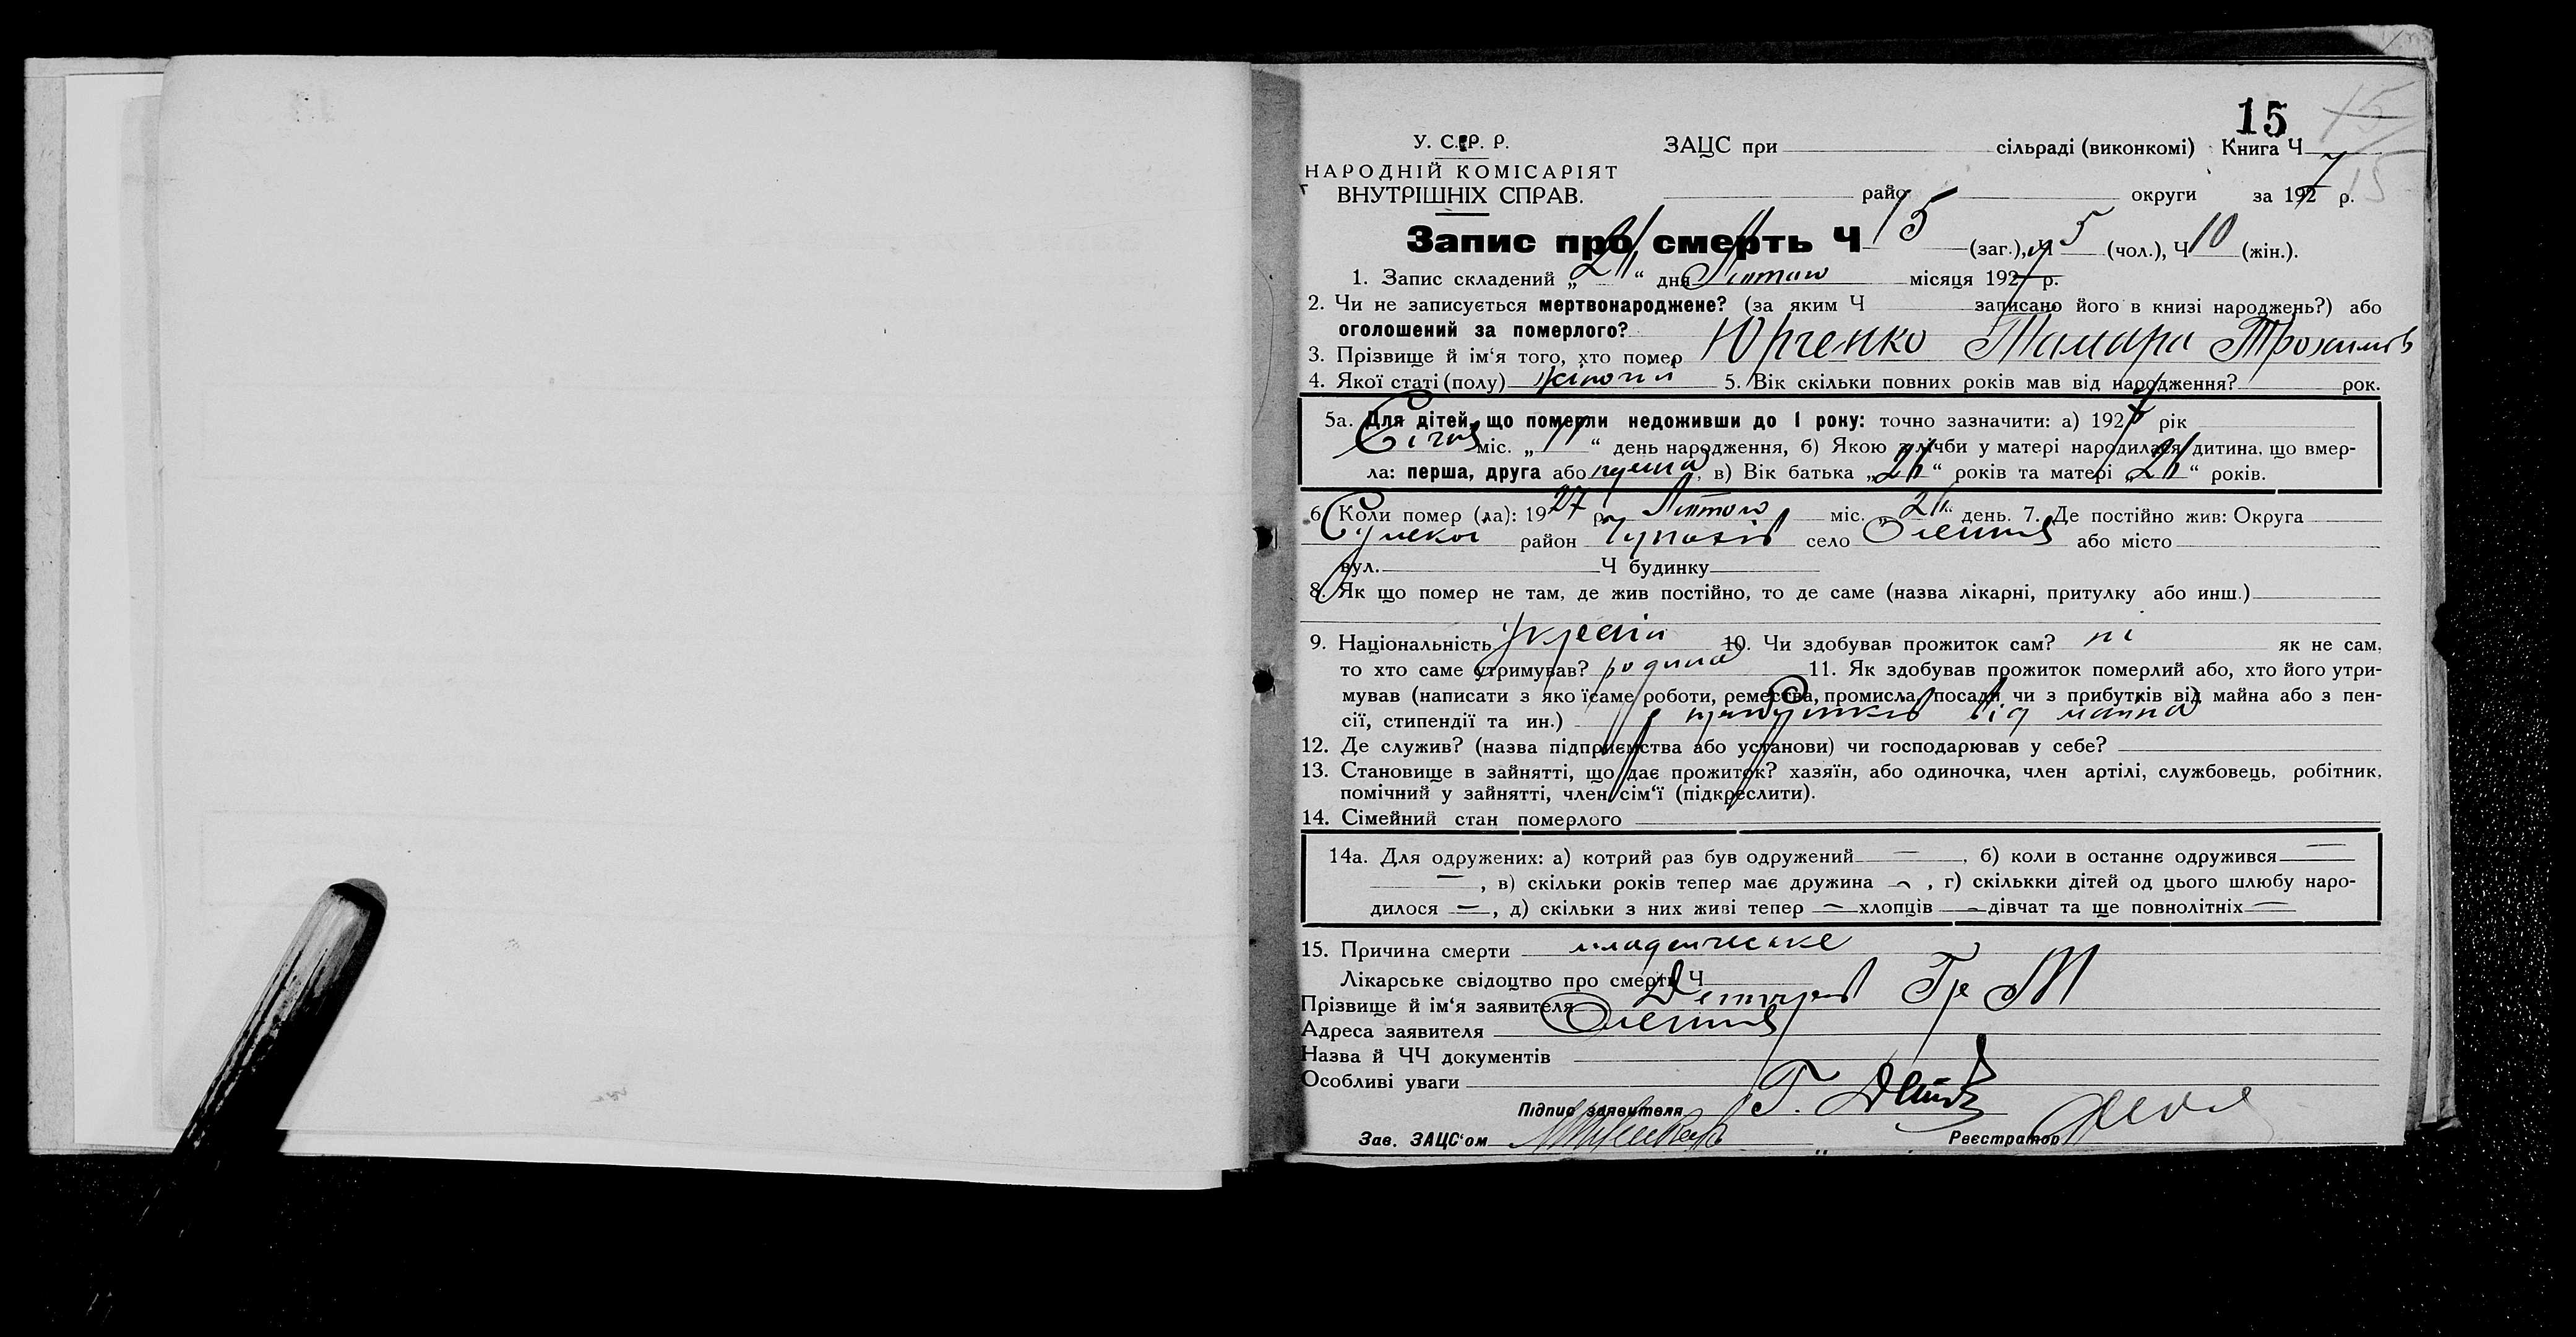 15
У. С. Р. Р.
ЗАЦС при сільраді (виконкомі) Книга Ч
НАРОДНІЙ КОМІСАРІЯТ
ВНУТРІШНІХ СПРАВ.
райо округи за 1927 р.
15
Запис про смерть Ч 15 (заг.), Ч 5 (чол.), Ч 10 (жін.).
1. Запис складений „ “ дня Лютого місяця 1927 р.
2. Чи не записується мертвонароджене? (за яким Ч записано його в книзі народжень?) або
оголошений за померлого?
3. Прізвище й ім‘я того, хто помер Юрченко Тамара
4. Якої статі (полу) жіночи 5. Вік скільки повних років мав від народження? рок.
5а. Для дітей, що померли недоживши до 1 року: точно зазначити: а) 1927 рік
Січня міс. „11“ день народження, б) Якою з лічби у матері народилася дитина, що вмер-
ла: перша, друга або перша, в) Вік батька „ “ років та матері „ “ років.
6. Коли помер (ла): 1927 р. Лютого міс. „ день. 7. Де постійно жив: Округа
Сумской район село або місто
вул. Ч будинку
8. Як що помер не там, де жив постійно, то де саме (назва лікарні, притулку або инш.)
9. Національність 10. Чи здобував прожиток сам? ні як не сам,
то хто саме утримував? родина 11. Як здобував прожиток померлий або, хто його утри-
мував (написати з яко їсаме роботи, ремества, промисла, посади чи з прибутків від майна або з пен-
сії, стипендії та ин.) С прибутків від майна
12. Де служив? (назва підприємства або установи) чи господарював у себе?
13. Становище в зайнятті, що дає прожиток? хазяїн, або одиночка, член артілі, службовець, робітник,
помічний у зайнятті, член сім‘ї (підкреслити).
14. Сімейний стан померлого
14а. Для одружених: а) котрий раз був одружений —, б) коли в останнє одружився —
—, в) скільки років тепер має дружина —, г) скількки дітей од цього шлюбу наро-
дилося —, д) скільки з них живі тепер — хлопців — дівчат та ще повнолітніх —
15. Причина смерти младенческе
Лікарське свідоцтво про смерть Ч
Прізвище й ім‘я заявителя
Адреса заявителя
Назва й ЧЧ документів
Особливі уваги
Підпис заявителя
Зав. ЗАЦС‘ом Реєстратор